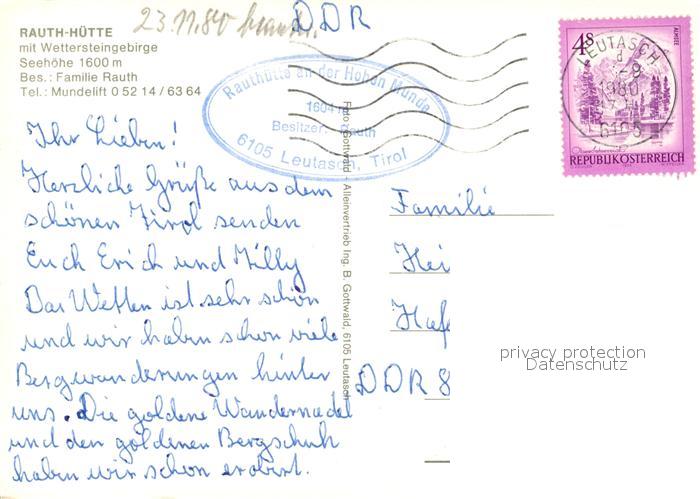 RAUTH-HÜTTE
mit Wettersteingebirge
Seehöhe 1600 m
Bes.: Familie Rauth
Tel.: Mundelift 0 52 14 / 63 64
23.11.80
DDR
Rauthütte an der Hohen Munde
1604 m
Besitzer: Rauth
6105 Leutasch, Tirol
4S
ALMSEE
REPUBLIK ÖSTERREICH
LEUTASCH
1980
6105
Foto: Gottwald - Alleinvertrieb Ing. B. Gottwald, 6105 Leutasch
Ihr Lieben!
Herzliche Grüße aus dem
schönen Tirol senden
Euch Erich und Milly
Das Wetter ist sehr schön
und wir haben schon viele
Bergwanderungen hinter
uns. Die goldene Wandernadel
und den goldenen Bergschuh
haben wir schon erobert.
Familie
Hei
Haf
DDR 8
privacy protection
Datenschutz